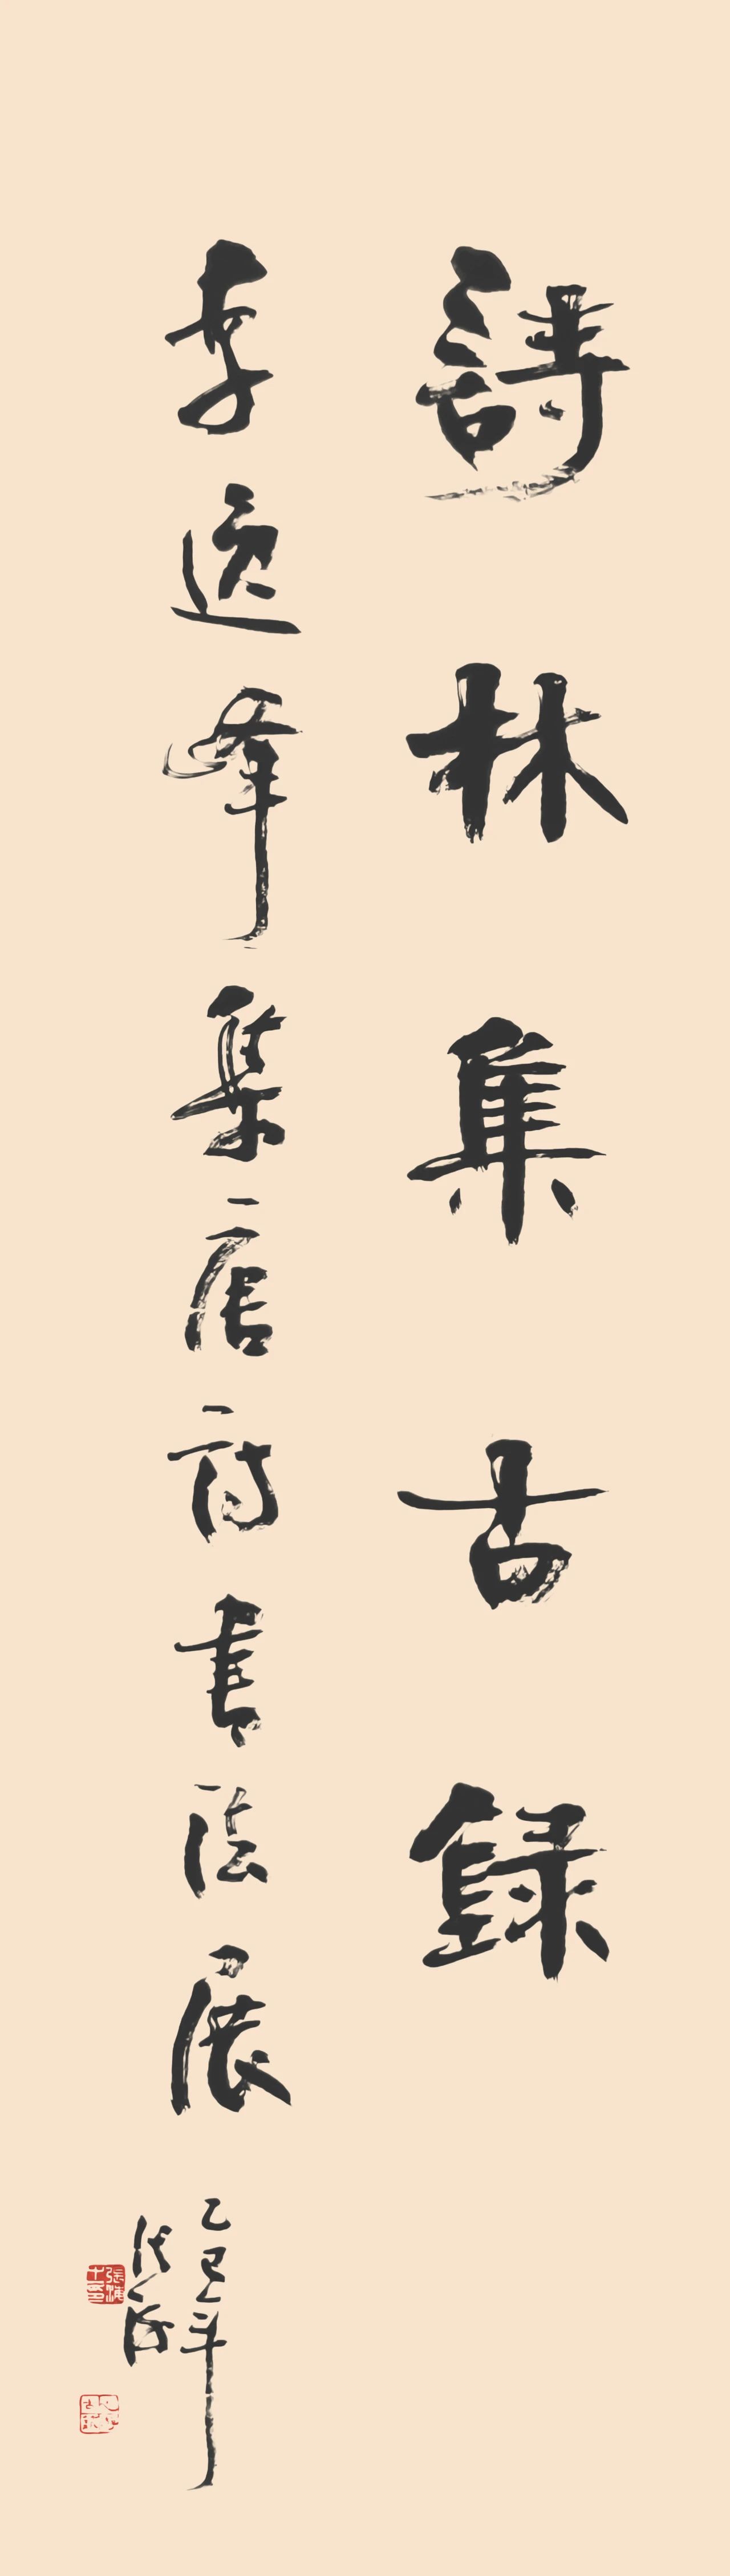 詩林集古録
李逸峰集唐詩書法展
乙巳年
張海